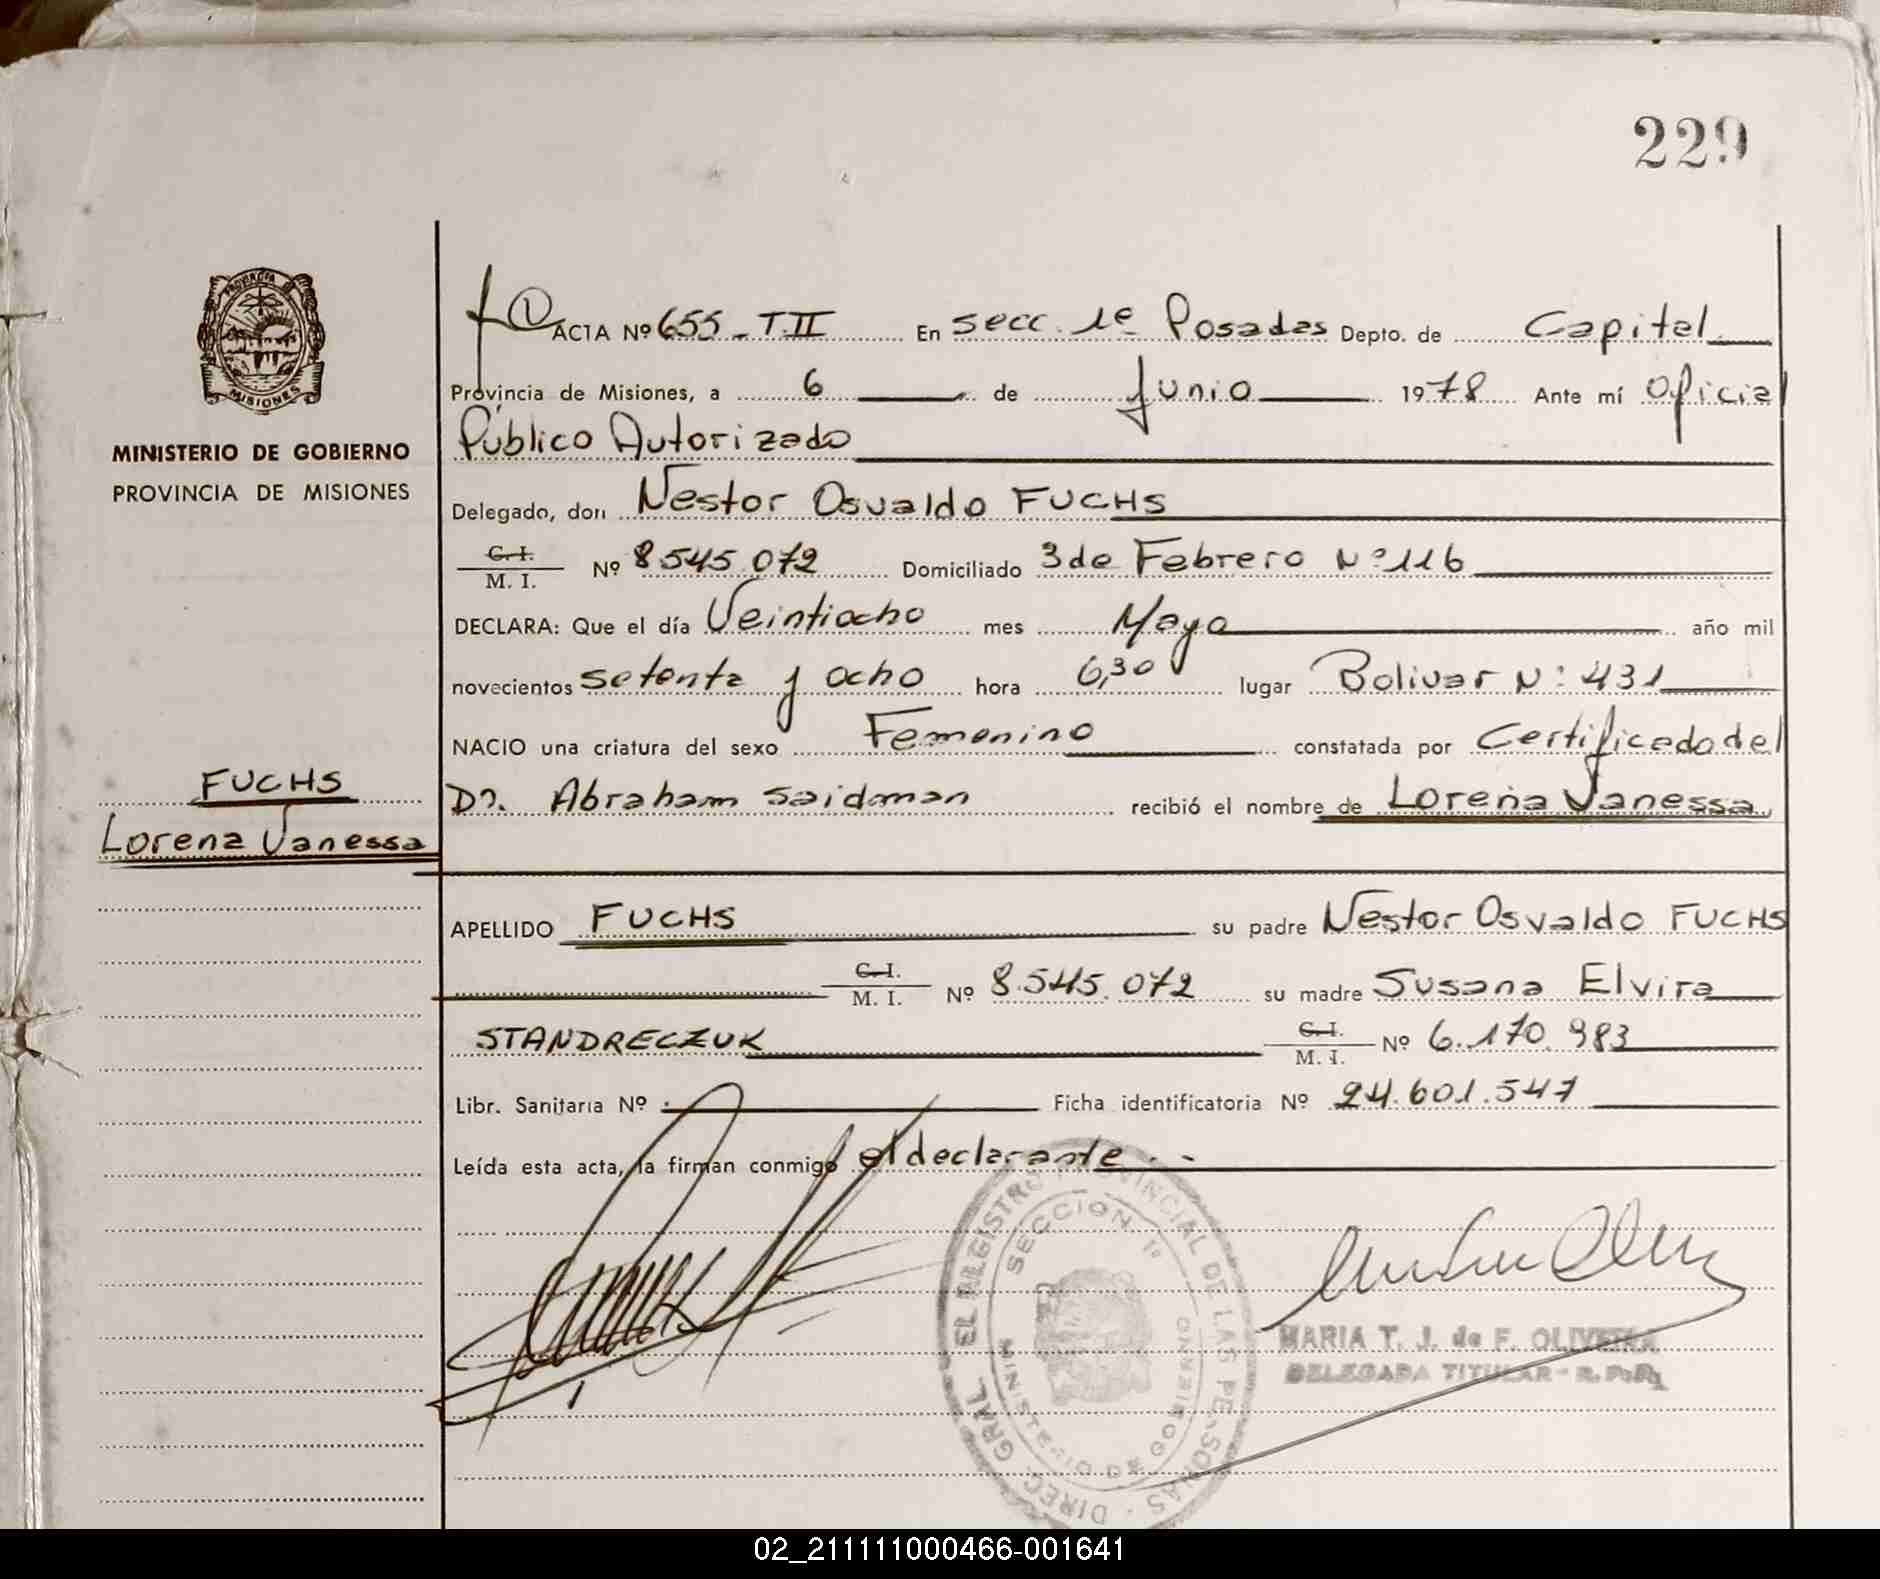 229
PROVINCIA
MISIONES
MINISTERIO DE GOBIERNO
PROVINCIA DE MISIONES
FUCHS
Lorena Vanessa
1 ACTA Nº 655 - T.II En secc. 1ª Posadas Depto. de Capital
Provincia de Misiones, a 6 de Junio 1978 Ante mí Oficial
Público Autorizado
Delegado, don Nestor Osvaldo FUCHS
C. I. / M. I. Nº 8.545.072 Domiciliado 3 de Febrero Nº 116
DECLARA: Que el día Veintiocho mes Mayo año mil
novecientos setenta y ocho hora 6,30 lugar Bolivar Nº 431
NACIO una criatura del sexo Femenino constatada por Certificado del
Dr. Abraham Saidman recibió el nombre de Lorena Vanessa
APELLIDO FUCHS su padre Nestor Osvaldo FUCHS
C. I. / M. I. Nº 8.545.072 su madre Susana Elvira
STANDRECZUK C. I. / M. I. Nº 6.170.983
Libr. Sanitaria Nº Ficha identificatoria Nº 24.601.547
Leída esta acta, la firman conmigo el declarante
DIREC. GRAL. DEL REGISTRO PROVINCIAL DE LAS PERSONAS
SECCION 1ª
MINISTERIO DE GOBIERNO
MARIA T. J. de F. OLIVEIRA
DELEGADA TITULAR - R. P. P.
02_211111000466-001641